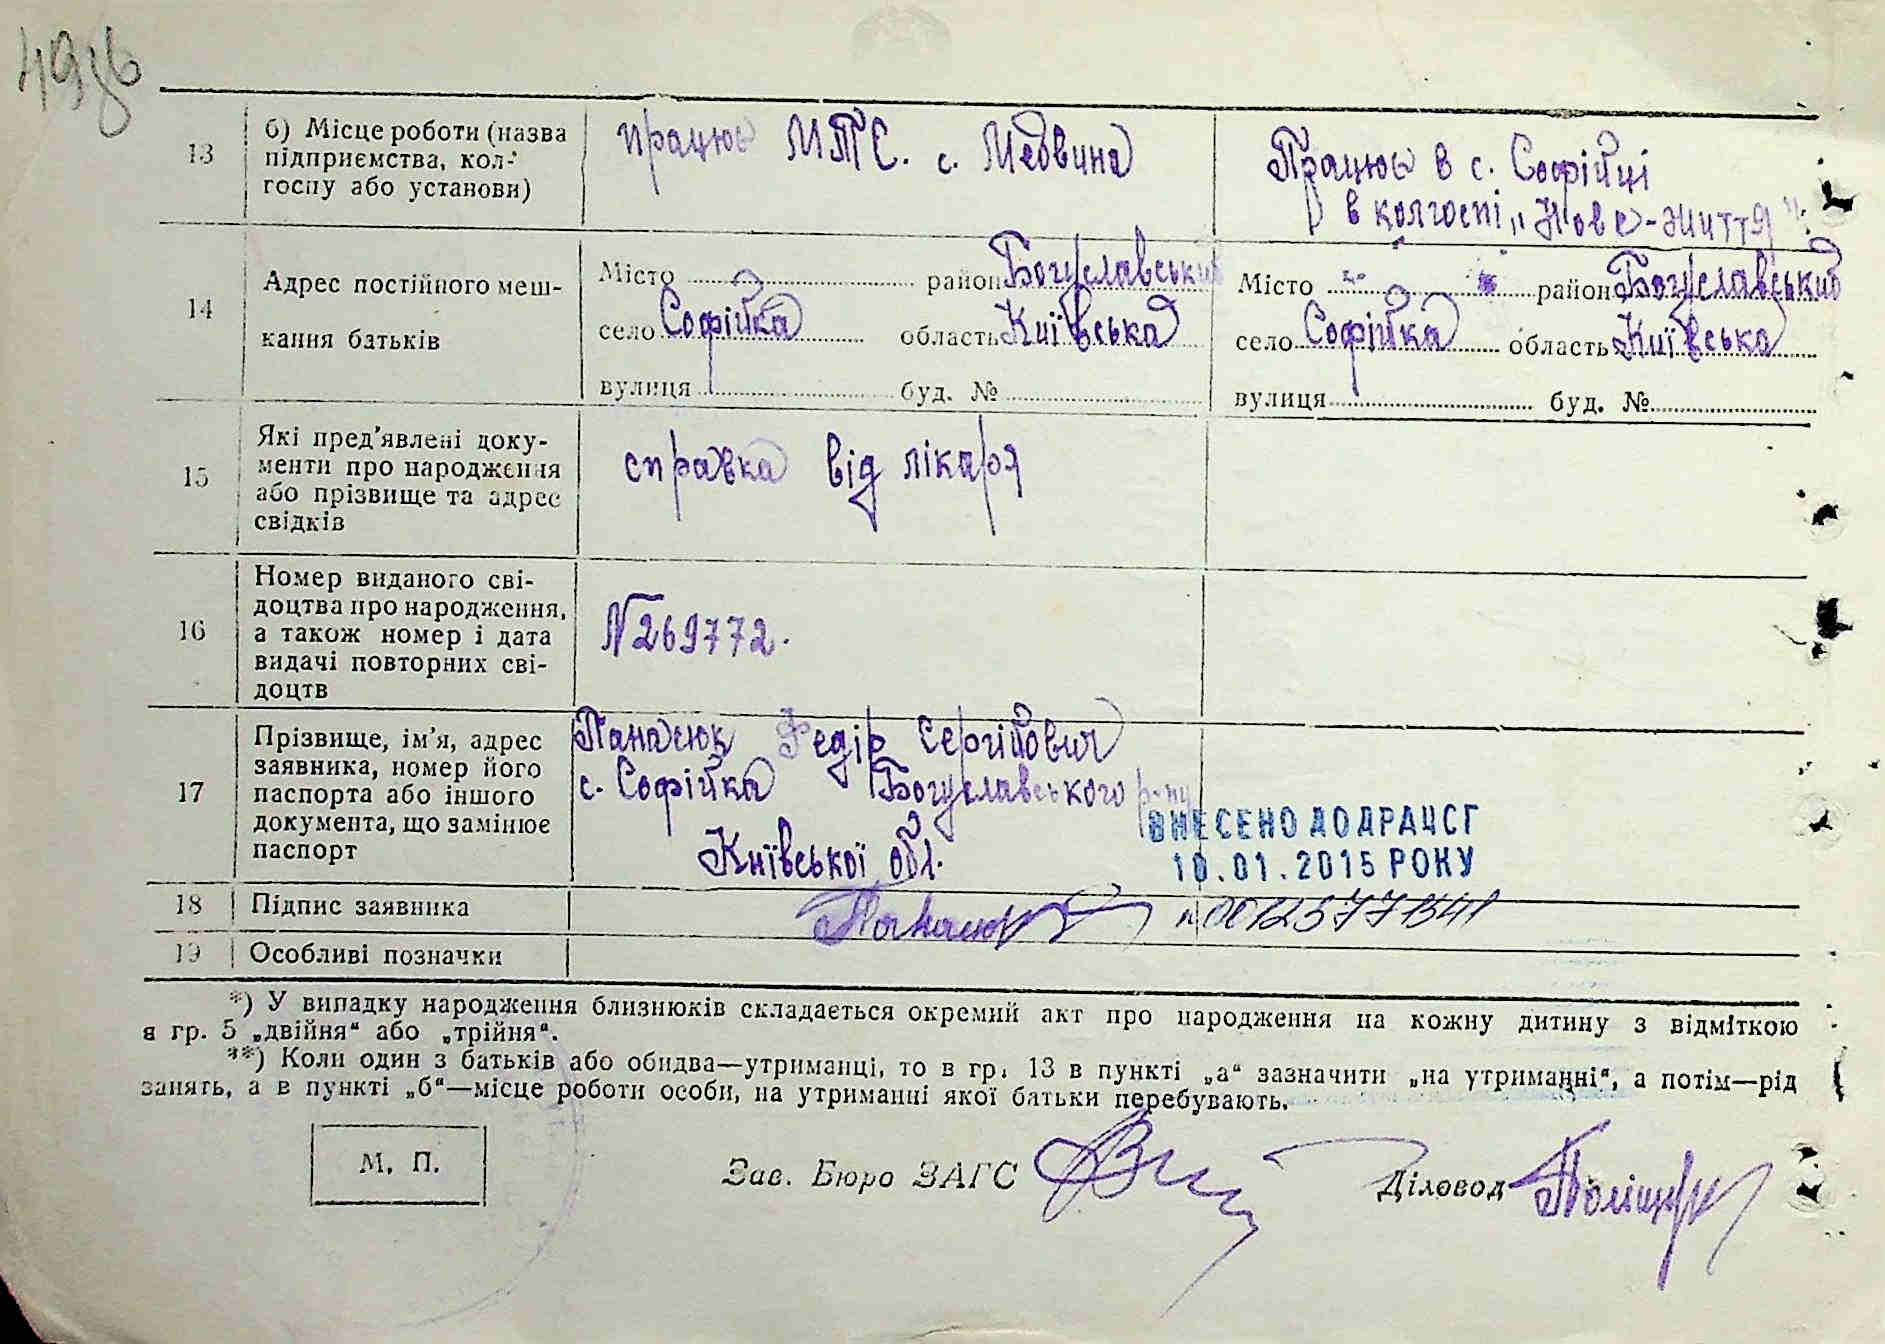 49зв
13
б) Місце роботи (назва
підприємства, кол-
госпу або установи)
працює МТС. с. Медвина
Працює в с. Софійці
в колгоспі „Нове-життя".
14
Адрес постійного меш-
кання батьків
Місто район Богуславський
село Софійка область Київська
вулиця буд. №
Місто район Богуславський
село Софійка область Київська
вулиця буд. №
15
Які пред'явлені доку-
менти про народження
або прізвище та адрес
свідків
справка від лікаря
16
Номер виданого сві-
доцтва про народження,
а також номер і дата
видачі повторних сві-
доцтв
№ 269772.
17
Прізвище, ім'я, адрес
заявника, номер його
паспорта або іншого
документа, що замінює
паспорт
Панасюк Федір Сергійович
с. Софійка Богуславського р-ну
Київської обл.
ВНЕСЕНО ДО ДРАЦСГ
10.01.2015 РОКУ
18
Підпис заявника
Панасюк
19
Особливі позначки
*) У випадку народження близнюків складається окремий акт про народження на кожну дитину з відміткою
в гр. 5 „двійня“ або „трійня“.
**) Коли один з батьків або обидва—утриманці, то в гр. 13 в пункті „а“ зазначити „на утриманні“, а потім—рід
занять, а в пункті „б“—місце роботи особи, на утриманні якої батьки перебувають.
М. П.
Зав. Бюро ЗАГС
Діловод